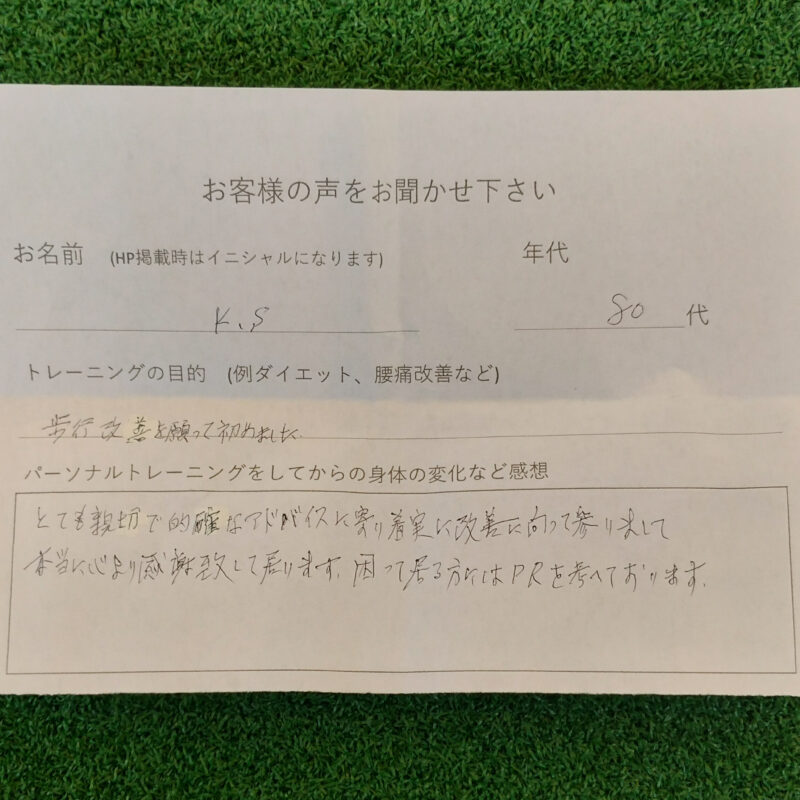 お客様の声をお聞かせ下さい
お名前 (HP掲載時はイニシャルになります) 年代
K.S 80 代
トレーニングの目的 (例ダイエット、腰痛改善など)
歩行改善を願って初めました.
パーソナルトレーニングをしてからの身体の変化など感想
とても親切で的確なアドバイスに寄り着実に改善に向って参りまして
本当に心より感謝致して居ります. 困って居る方にはPRを考へております.